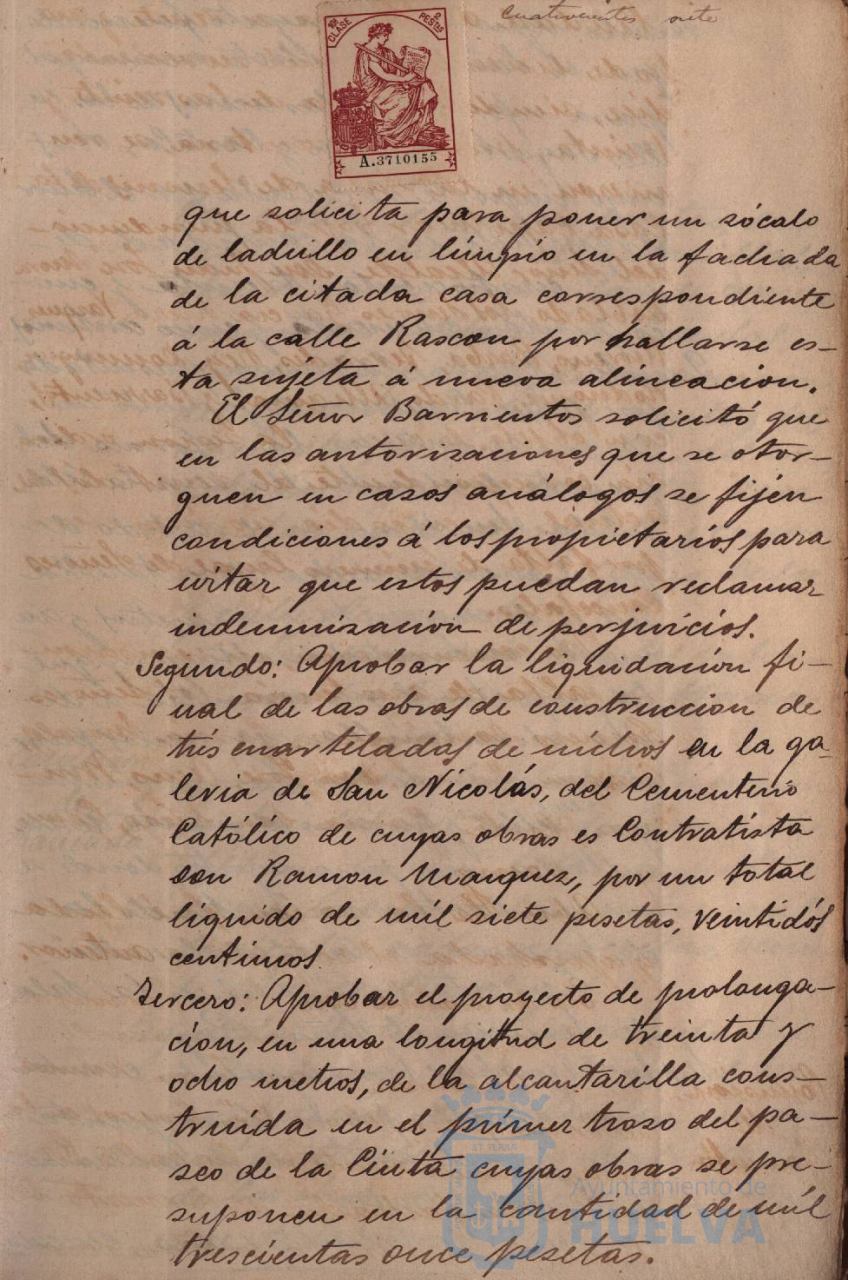 cuatrocientos siete
10ª CLASE 2 PESETAS
A.3710155
que solicita para poner un zócalo
de ladrillo en límpio en la fachada
de la citada casa correspondiente
á la calle Rascon por hallarse es-
ta sujeta á nueva alineacion.
El Señor Barrientos solicitó que
en las autorizaciones que se otor-
guen en casos análogos se fijen
condiciones á los propietarios para
evitar que estos puedan reclamar
indemnización de perjuicios.
Segundo: Aprobar la liquidación fi-
nal de las obras de construccion de
trés cuarteladas de nichos en la ga-
leria de San Nicolás, del Cementerio
Católico de cuyas obras es Contratista
don Ramon Marquez, por un total
líquido de mil siete pesetas, veintidós
centimos.
Tercero: Aprobar el proyecto de prolonga-
ción, en una longitud de treinta y
ocho metros, de la alcantarilla cons-
truida en el primer trozo del pa-
seo de la Cinta cuyas obras se pre-
suponen en la cantidad de mil
trescientas once pesetas.
Ayuntamiento de
HUELVA